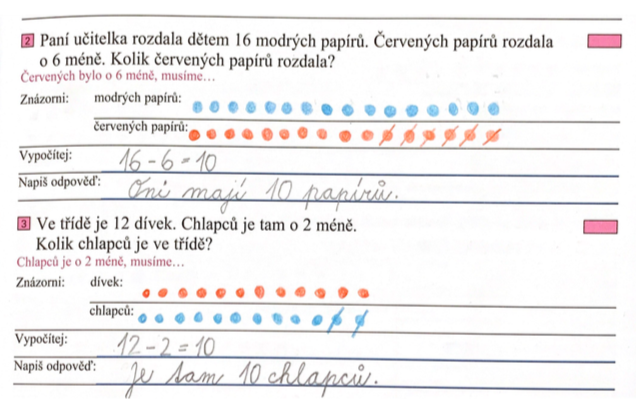 2 Paní učitelka rozdala dětem 16 modrých papírů. Červených papírů rozdala
o 6 méně. Kolik červených papírů rozdala?
Červených bylo o 6 méně, musíme...
Znázorni: modrých papírů:
červených papírů:
Vypočítej: 16-6=10
Napiš odpověď: Oni mají 10 papírů.
3 Ve třídě je 12 dívek. Chlapců je tam o 2 méně.
Kolik chlapců je ve třídě?
Chlapců je o 2 méně, musíme...
Znázorni: dívek:
chlapců:
Vypočítej: 12-2=10
Napiš odpověď: Je tam 10 chlapců.